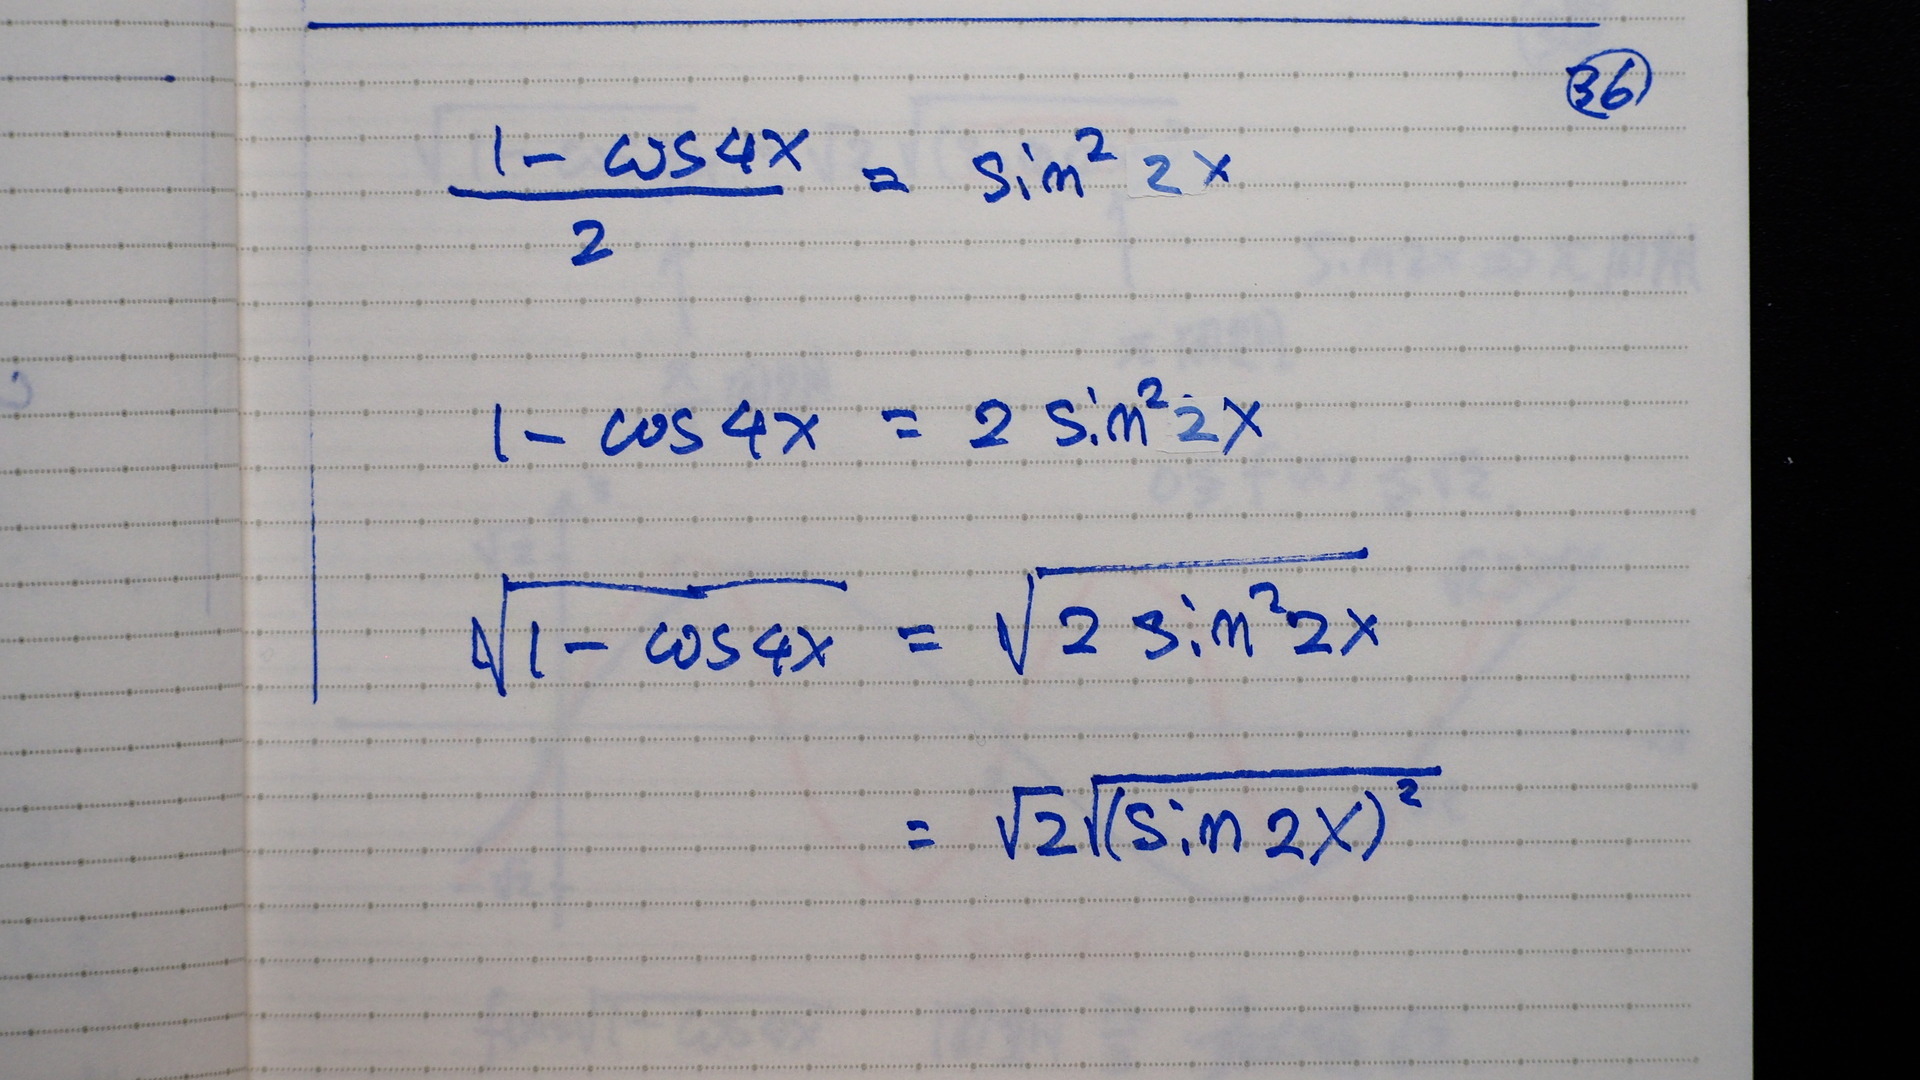 36
(1 - cos4x)/2 = sin² 2x
1 - cos 4x = 2 sin² 2x
√(1 - cos4x) = √(2 sin² 2x)
= √2 √((sin 2x)²)